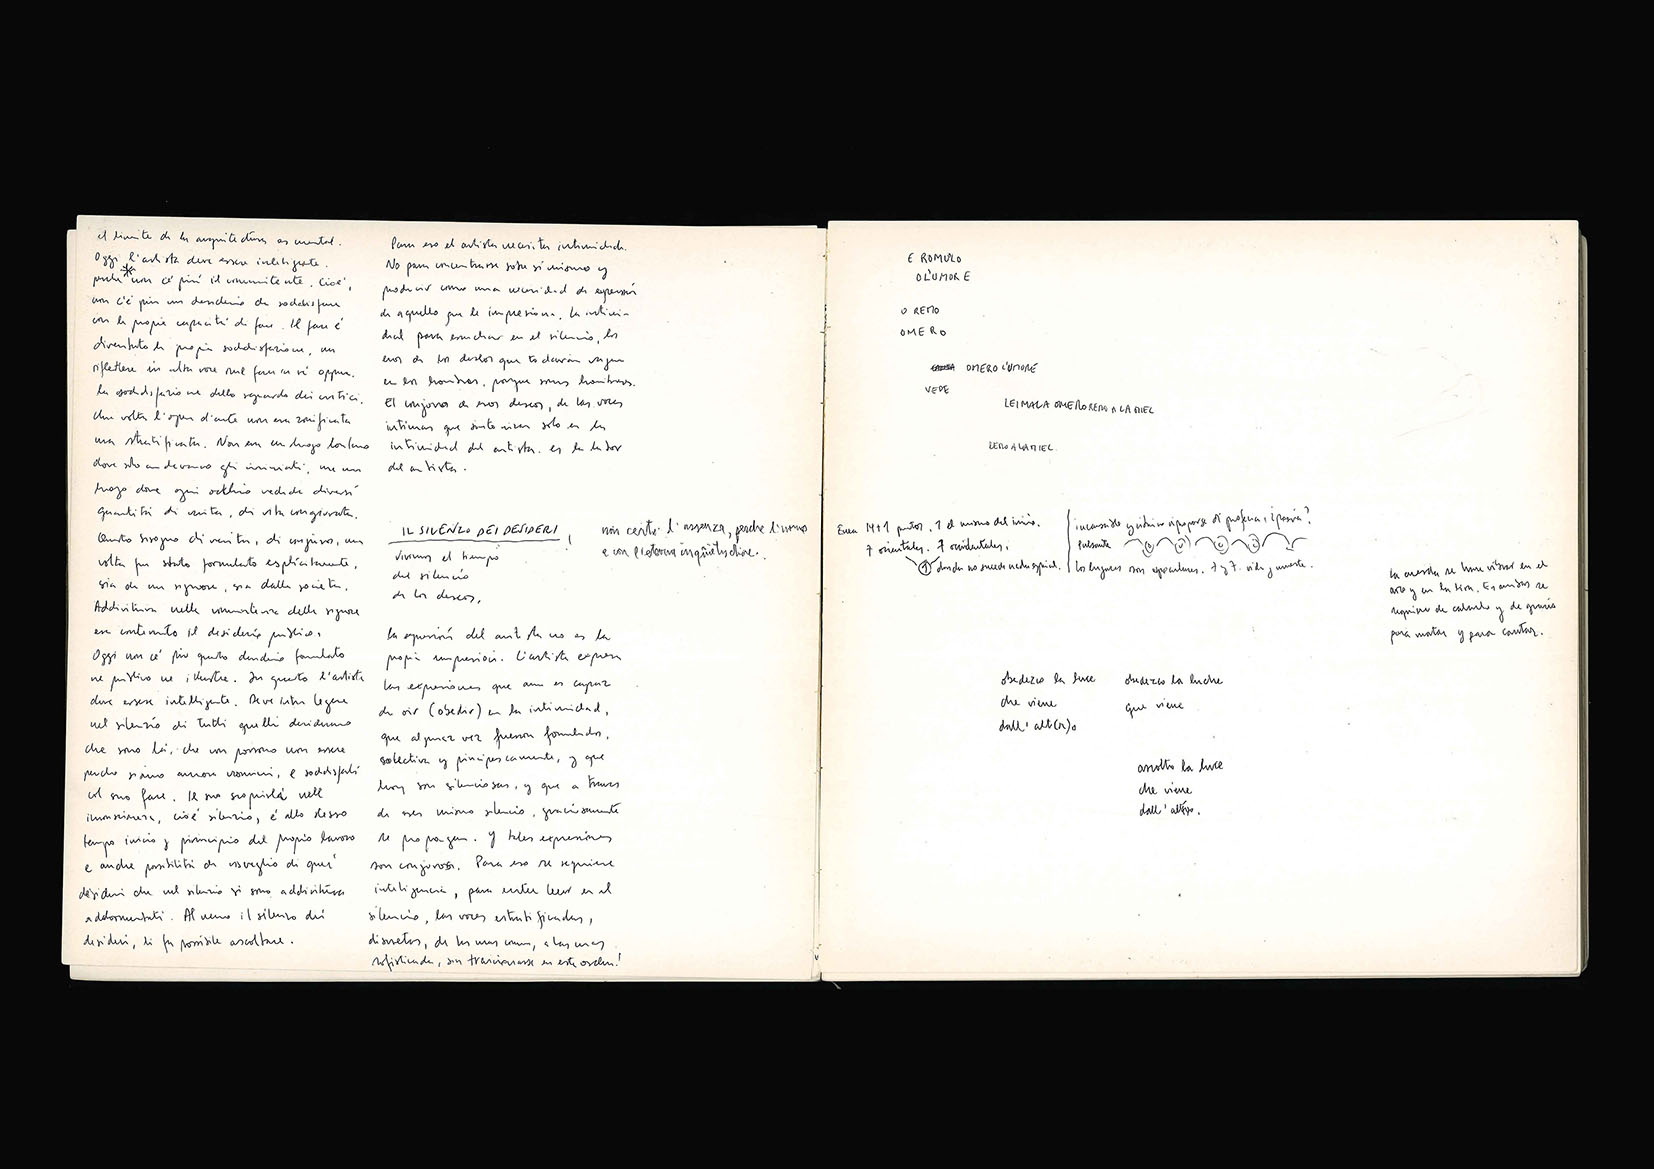 el limite de la arquitectura es mental.
Oggi l'artista deve essere intelligente.
perché non c'é piú il committente. Cioé,
non c'é piú un desiderio da soddisfare
con la propia capacitá di fare. Il fare é
diventato la propia soddisfazione, un
riflettere in alta voce sul fare in sé oppure
la soddisfazione dello sguardo dei critici.
Una volta l'opera d'arte non era zonificata
ma stratificata. Non era un luogo lontano
dove solo andavano gli iniziati, ma un
luogo dove ogni occhio vedeva diversi
quantitá di veritá, di vita congiurata.
Questo bisogno di veritá, di congiuro, una
volta fu stato formulato esplicitamente,
sia da un signore, sia dalla societá.
Addirittura nella committenza delle signore
era contenuto il desiderio publico.
Oggi non c'é piú questo desiderio formulato
ne publico ne illustre. In questo l'artista
deve essere intelligente. Deve inter legere
nel silenzio di tutti quelli desideri
che sono lá, che non possono non essere
perche siamo ancora uomini, e soddisfarli
col suo fare. Il suo scoprirlo nell
cioé silenzio, é allo stesso
tempo inizio y principio del propio lavoro
e anche possibilitá di risveglio di quei
desideri che nel silenzio si sono addirittura
addormentati. Al meno il silenzo dei
desideri, li fa possibile ascoltare.
Para eso el artista necesita intimidad.
No para concentrarse sobre sí mismo y
producir como una necesidad de expresión
de aquello que le impresiona. La intimi-
dad para escuchar en el silencio, los
ecos de los deseos que todavía vagan
en los hombres, porque somos hombres.
El conjuro de esos deseos, de las voces
intimas que
intimidad del artista. es la labor
del artista.
IL SILENZO DEI DESIDERI
non certo l'assenza, perche l'uomo
e con
vivimos el tiempo
del silencio
de los deseos,
la expresión del artista no es la
propia impresión. L'artista expresa
las expresiones que aun es capaz
de oir (obedir) en la intimidad,
que alguna vez fueron formuladas,
colectiva y principescamente, y que
hoy son silenciosas, y que a traves
de ese mismo silencio, graciosamente
se propagan. Y tales expresiones
son conjuros. Para eso se requiere
inteligencia, para enter leer en el
silencio, las voces estratificadas,
discretas, de las mas a las mas
sofisticada, sin traicionarse en este orden!
E ROMULO
O L'UMORE
O REMO
OMERO
OMERO L'UMORE
VEDE
LEIMALA OMERO REMO A LA MIEL
ZERO A LA MIEL
14+1 puntos. 1 el mismo del inicio.
7 orientales. 7 occidentales.
1 donde no sucede nada especial.
incansable y
pulsante
los lugares son especulares. 7 y 7. vida y muerte.
la cuerda se hace vibrar en el
arco y en la lira. En ambos se
requiere de calculo y de gracia
para matar y para cantar.
obedezco la luce
che viene
dall'alt(r)o
obedezco la luche
que viene
ascolto la luce
che viene
dall'altro.